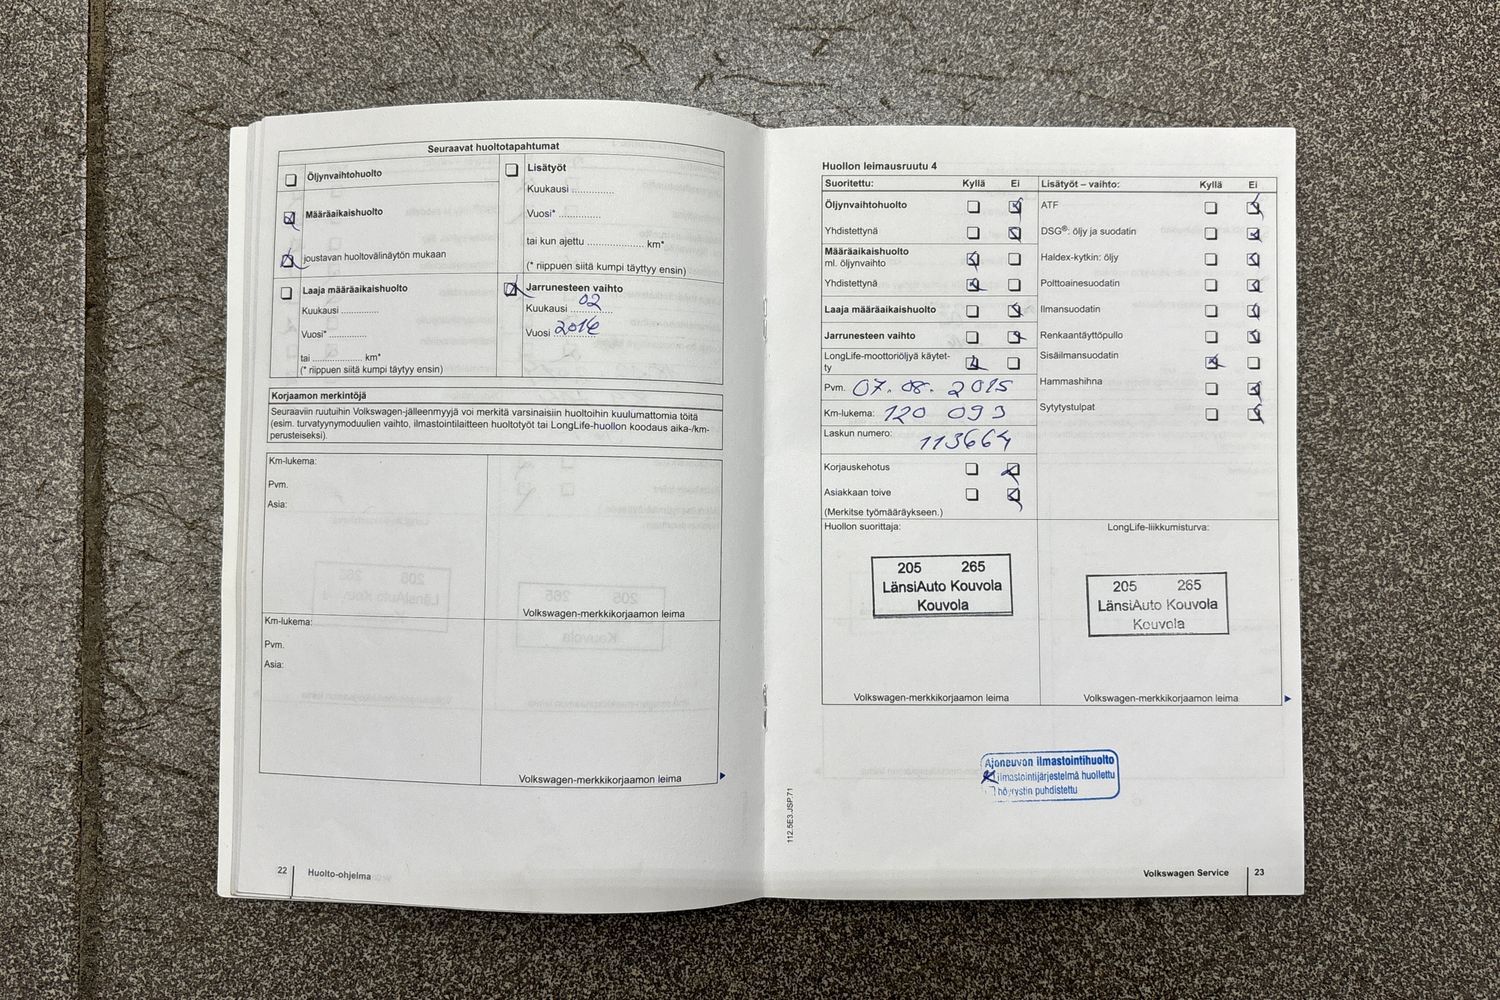 Seuraavat huoltotapahtumat
Öljynvaihtohuolto
Määräaikaishuolto
joustavan huoltovälinäytön mukaan
Laaja määräaikaishuolto
Kuukausi ..............
Vuosi* ..............
tai .................... km*
(* riippuen siitä kumpi täytyy ensin)
Lisätyöt
Kuukausi ..............
Vuosi* ..............
tai kun ajettu .................... km*
(* riippuen siitä kumpi täyttyy ensin)
Jarrunesteen vaihto
Kuukausi 02
Vuosi 2016
Korjaamon merkintöjä
Seuraaviin ruutuihin Volkswagen-jälleenmyyjä voi merkitä varsinaisiin huoltoihin kuulumattomia töitä
(esim. turvatyynymoduulien vaihto, ilmastointilaitteen huoltotyöt tai LongLife-huollon koodaus aika-/km-
perusteiseksi).
Km-lukema:
Pvm.
Asia:
Volkswagen-merkkikorjaamon leima
Km-lukema:
Pvm.
Asia:
Volkswagen-merkkikorjaamon leima
22 Huolto-ohjelma
Huollon leimausruutu 4
Suoritettu: Kyllä Ei
Öljynvaihtohuolto
Yhdistettynä
Määräaikaishuolto
ml. öljynvaihto
Yhdistettynä
Laaja määräaikaishuolto
Jarrunesteen vaihto
LongLife-moottoriöljyä käytet-
ty
Pvm. 07.08.2015
Km-lukema: 120 093
Laskun numero: 113664
Korjauskehotus
Asiakkaan toive
(Merkitse työmääräykseen.)
Lisätyöt – vaihto: Kyllä Ei
ATF
DSG®: öljy ja suodatin
Haldex-kytkin: öljy
Polttoainesuodatin
Ilmansuodatin
Renkaantäyttöpullo
Sisäilmansuodatin
Hammashihna
Sytytystulpat
Huollon suorittaja:
205 265
LänsiAuto Kouvola
Kouvola
Volkswagen-merkkikorjaamon leima
LongLife-liikkumisturva:
205 265
LänsiAuto Kouvola
Kouvola
Volkswagen-merkkikorjaamon leima
Ajoneuvon ilmastointihuolto
ilmastointijärjestelmä huollettu
höyrystin puhdistettu
112.5E3.JSP.71
Volkswagen Service 23